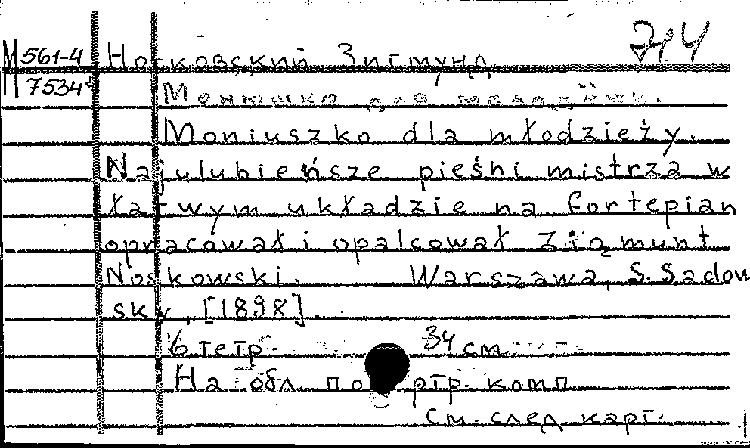 244
М 561-4 Носковский Зигмунд
М 7534 Монюшко для молодёжи.
Moniuszko dla młodzieży.
Najulubieńsze pieśni mistrza w
łatwym układzie na fortepian
opracował i opalcował Zigmunt
Noskowski. Warszawa, S. Sadow
sky, [1898].
6 тетр. 34 см.
На обл. портр. комп.
См. след. карт.